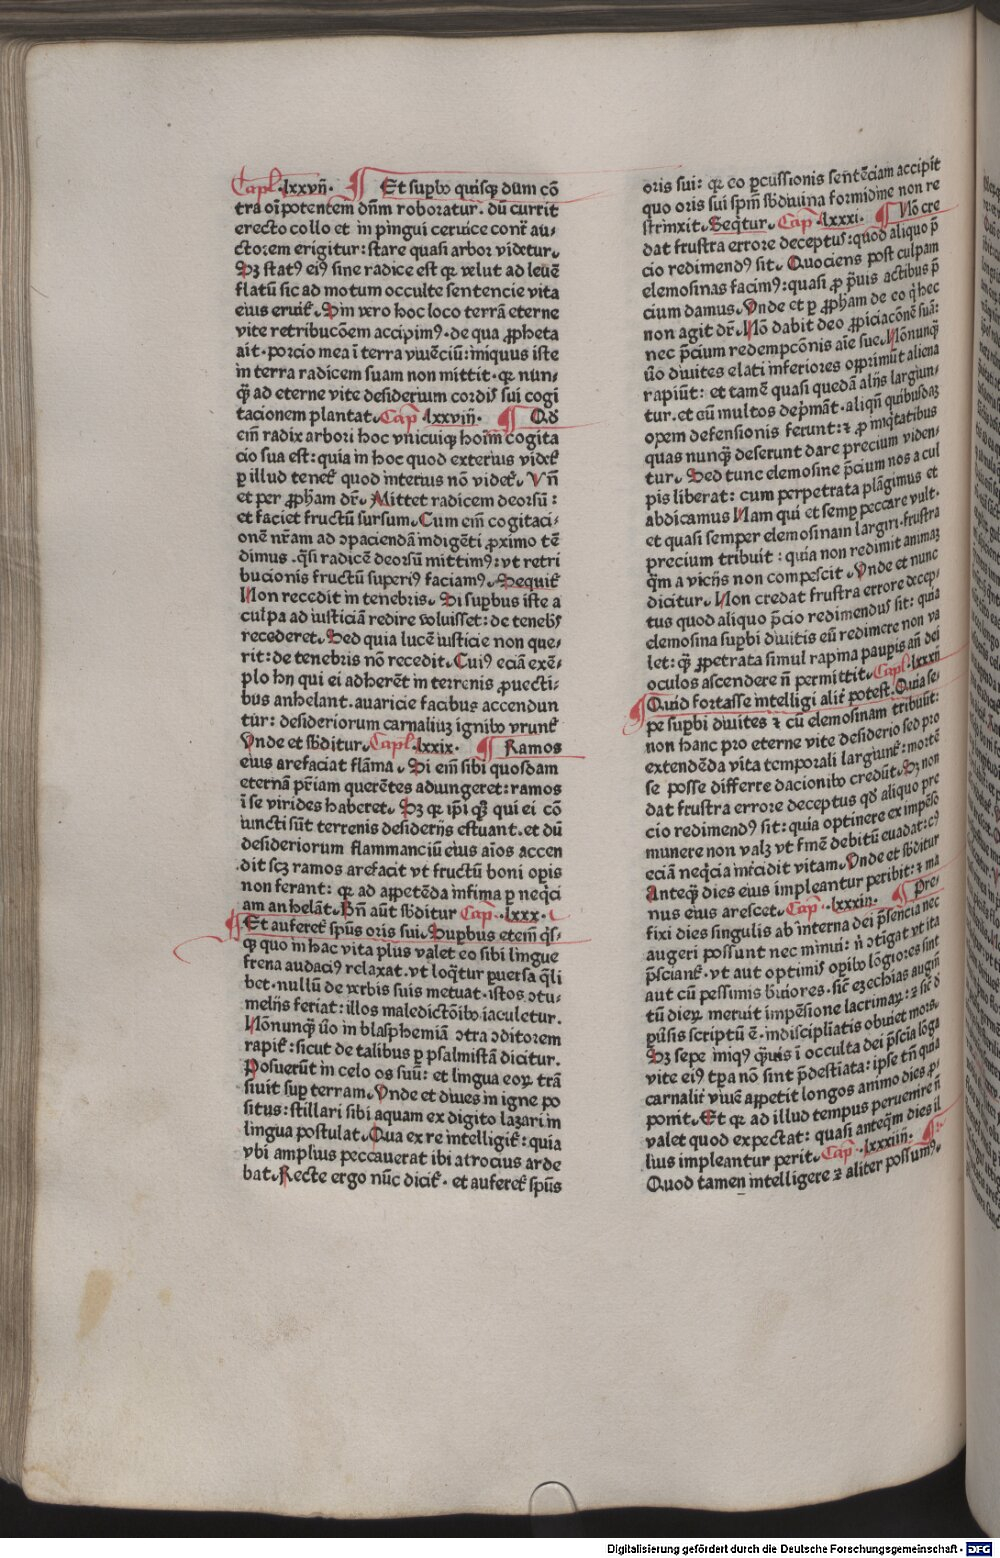 Capl̓ .lxxvij̄. ¶ Et suꝑbo quisqꝫ dum cō
tra oīpotentem dn̄m roboratur. dū currit
erecto collo et in pingui ceruice contͣ au⸗
ctorem erigitur: stare quasi arbor videtur.
Sꝫ statꝰ eiꝰ sine radice est qꝛ velut ad leuē
flatū sic ad motum occulte sentencie vita
eius eruit᷑. Sin vero hoc loco terrā eterne
vite retribucōem accipimꝰ. de qua ꝓpheta
ait. porcio mea ī terra viuēciū: iniquus iste
in terra radicem suam non mittit. qꝛ nun⸗
qͣꝫ ad eterne vite desiderium cordis sui cogi
tacionem plantat. Cap̄ .lxxviij̄. ¶ Qd̓
em̄ radix arbori hoc vnicuiqꝫ hoīm cogita
cio sua est: quia in hoc quod exterius videt᷑
ꝑ illud tenet᷑ quod interius nō videt᷑. Vn̄
et per ꝓph̓am dr̄. Mittet radicem deorsū:
et faciet fructū sursum. Cum em̄ cogitaci⸗
onē nr̄am ad ↄpaciendā indigēti ꝓximo tē
dimus. qͣsi radicē deorsū mittimꝰ: vt retri
bucionis fructū superiꝰ faciamꝰ. Sequit᷑
Non recedit in tenebris. Si suꝑbus iste a
culpa ad iusticiā redire voluisset: de tenebͥs
recederet. Sed quia lucē iusticie non que⸗
rit: de tenebris nō recedit. Cuiꝰ eciā exē⸗
plo hn̄ qui ei adherēt in terrenis ꝓuecti⸗
bus anhelant. auaricie facibus accendun
tur: desideriorum carnaliuꝫ ignibꝰ vrunt᷑
Vnde et sb̓ditur. Capl̓ .lxxix. ¶ Ramos
eius arefaciat flāma. Si em̄ sibi quosdam
eternā pr̄iam querētes adiungeret: ramos
ī se virides haberet. Sꝫ qꝛ ip̄i qͦqꝫ qui ei cō
iuncti sūt terrenis desiderijs estuant. et dū
desideriorum flammanciū eius aīos accen
dit scꝫ ramos arefacit vt fructū boni oꝑis
non ferant: qꝛ ad appetēda infima ꝑ neqͥci
am anhelāt. Bn̄ aūt sb̓ditur Cap̄ .lxxx.
¶ Et auferet᷑ spūs oris sui. Suꝑbus etem̄ qͥs⸗
qꝫ quo in hac vita plus valet eo sibi lingue
frena audaciꝰ relaxat. vt loqͣtur ꝑuersa qͣli
bet. nullū de verbis suis metuat. istos ↄtu⸗
melijs feriat: illos maledictōibꝰ iaculetur.
Nōnunqͣꝫ v̄o in blasphemiā ↄtra ↄditorem
rapit᷑: sicut de talibus ꝑ psalmistā dicitur.
Posuerūt in celo os suū: et lingua eoꝝ trā
siuit suꝑ terram. Vnde et diues in igne po
situs: stillari sibi aquam ex digito lazari in
lingua postulat. Qua ex re intelligit᷑: quia
vbi amplius peccauerat ibi atrocius arde
bat. Recte ergo nūc dicit᷑. et auferet᷑ spūs
oris sui: qꝛ eo ꝑcussionis sentēciam accipit
quo oris sui sp̄m sb̓ diuina formidine non re
strinxit. Seqͥtur. Cap̄ .lxxxi. ¶ Nō cre
dat frustra errore deceptus: quod aliquo p̄
cio redimendꝰ sit. Quociens post culpam
elemosinas facimꝰ: quasi ꝓ p̄uis actibus p̄
cium damus. Vnde et ꝑ ꝓph̓am de eo qͥ hec
non agit dr̄. Nō dabit deo ꝓpiciacōnē suā:
nec p̄cium redempcōnis aīe sue. Nōnunqͣꝫ
v̄o diuites elati inferiores opprimūt aliena
rapiūt: et tamē quasi quedā alijs largiun⸗
tur. et cū multos dep̄māt. aliqn̄ quibusdaꝫ
opem defensionis ferunt: ꝛ ꝓ iniqͥtatibus
quas nunqͣꝫ deserunt dare precium viden⸗
tur. Sed tunc elemosine p̄cium nos a cul
pis liberat: cum perpetrata plāgimus et
abdicamus Nam qui et semꝑ peccare vult.
et quasi semper elemosinam largiri. frustra
precium tribuit: quia non redimit animaꝫ
qͣm a vicijs non compescit. Vnde et nunc
dicitur. Non credat frustra errore decep⸗
tus quod aliquo p̄cio redimendus sit: quia
elemosina suꝑbi diuitis eū redimere non va
let: qͣꝫ ꝑpetrata simul rapina pauꝑis an̄ dei
oculos ascendere n̄ permittit. Capl̓ .lxxxij̄
¶ Quid fortasse intelligi alit᷑ potest. Quia se⸗
pe suꝑbi diuites ꝛ cū elemosinam tribuūt:
non hanc pro eterne vite desiderio sed pro
extendēda vita temporali largiunt᷑: mortē
se posse differre dacionibꝰ credūt. Sꝫ non
dat frustra errore deceptus qd̓ aliquo pre
cio redimendꝰ sit: quia optinere ex impēso
munere non valꝫ vt finē debitū euadat: cꝰ
eciā neqͥcia int̓cidit vitam. Vnde et sb̓ditur
Anteqͣꝫ dies eius impleantur peribit: ꝛ ma
nus eius arescet. Cap̄ .lxxxiij̄. ¶ Pre⸗
fixi dies singulis ab interna dei p̄sciencia nec
augeri possunt nec minui: n̄ ↄtīgat vt ita
p̄sciant᷑. vt aut optimis oꝑibꝰ lōgiores sint
aut cū pessimis b̓uiores. sic̄ ezechias augm̄
tū dieꝝ meruit impēsione lacrimaꝝ: ꝛ sic̄ d̓
ꝑūsis scriptū ē. indiscipliatis obuiet mors.
Sꝫ sepe iniqꝰ qͣuis ī occulta dei p̄scīa lōga
vite eiꝰ tꝑa nō sint p̄destīata: ipse tn̄ quia
carnalit᷑ viuē appetit longos animo dies ꝓ⸗
ponit. Et qꝛ ad illud tempus peruenire n̄
valet quod expectat: quasi anteqͣꝫ dies il
lius impleantur perit. Cap̄ .lxxxiiij̄. ¶
Quod tamen intelligere ꝛ aliter possumꝰ.
Digitalisierung gefördert durch die Deutsche Forschungsgemeinschaft - DFG